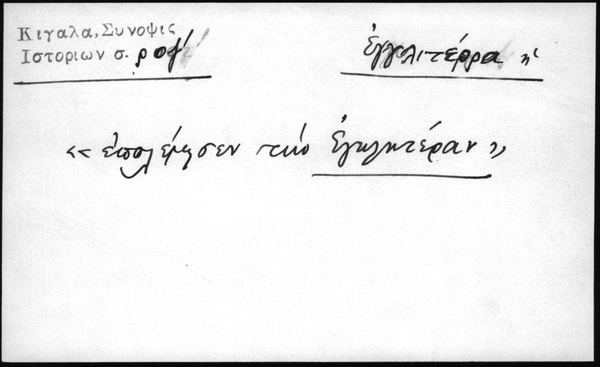 Κιγαλα, Συνοψις
Ιστοριων σ. ροζ΄
Ἐγγλιτέρρα ἡ
«ἐπολέμησεν τὴν Ἐγκλητέραν»